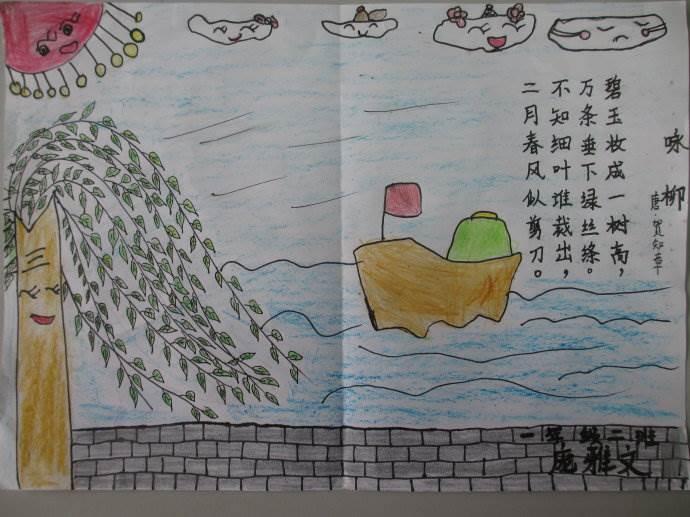 咏柳
唐·贺知章
碧玉妆成一树高，
万条垂下绿丝绦。
不知细叶堆裁出，
二月春风似剪刀。
一年级二班
庞雅文